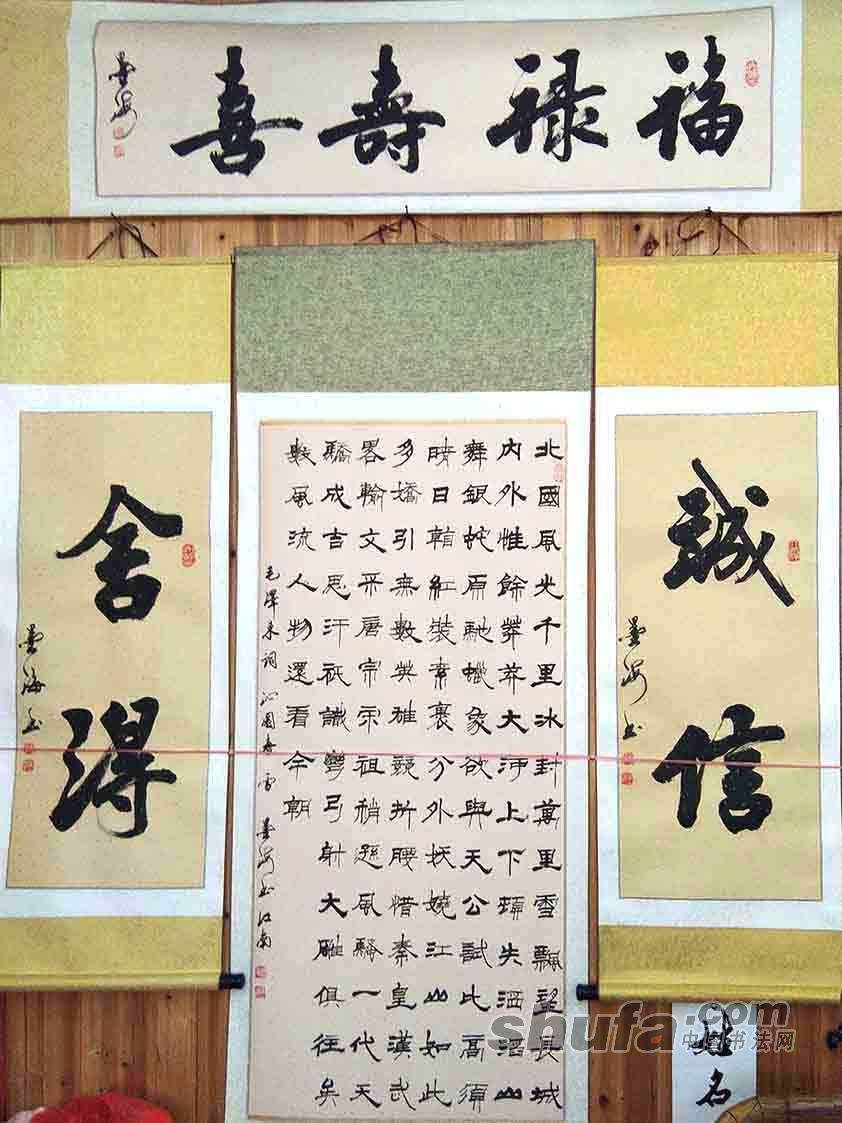 福禄壽喜
墨海
誠信
墨海书
北國風光千里冰封萬里雪飄望長城
內外惟餘莽莽大河上下頓失滔滔山
舞銀蛇原馳蠟象欲與天公試比高須
晴日看紅裝素裹分外妖嬈江山如此
多嬌引無數英雄競折腰惜秦皇漢武
畧輸文采唐宗宋祖稍遜風騷一代天
驕成吉思汗祇識彎弓射大雕俱往矣
數風流人物還看今朝
毛澤東詞 沁園春 雪 墨海书江南
舍得
墨海书
姓名
shufa.com
中国书法网